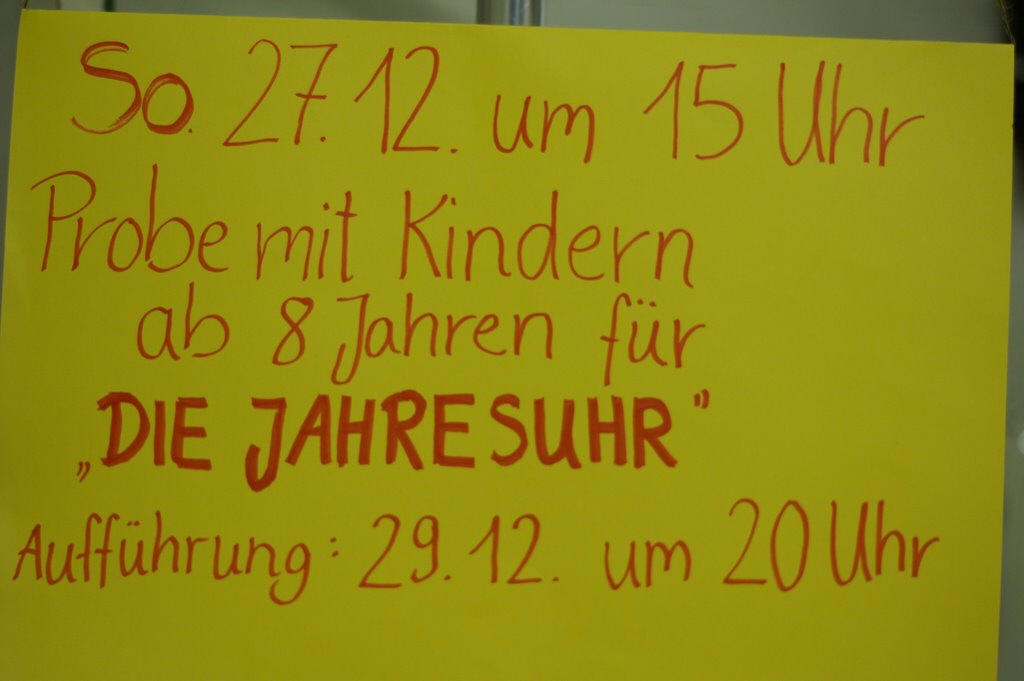 So. 27.12. um 15 Uhr
Probe mit Kindern
ab 8 Jahren für
„DIE JAHRESUHR"
Aufführung: 29.12. um 20 Uhr